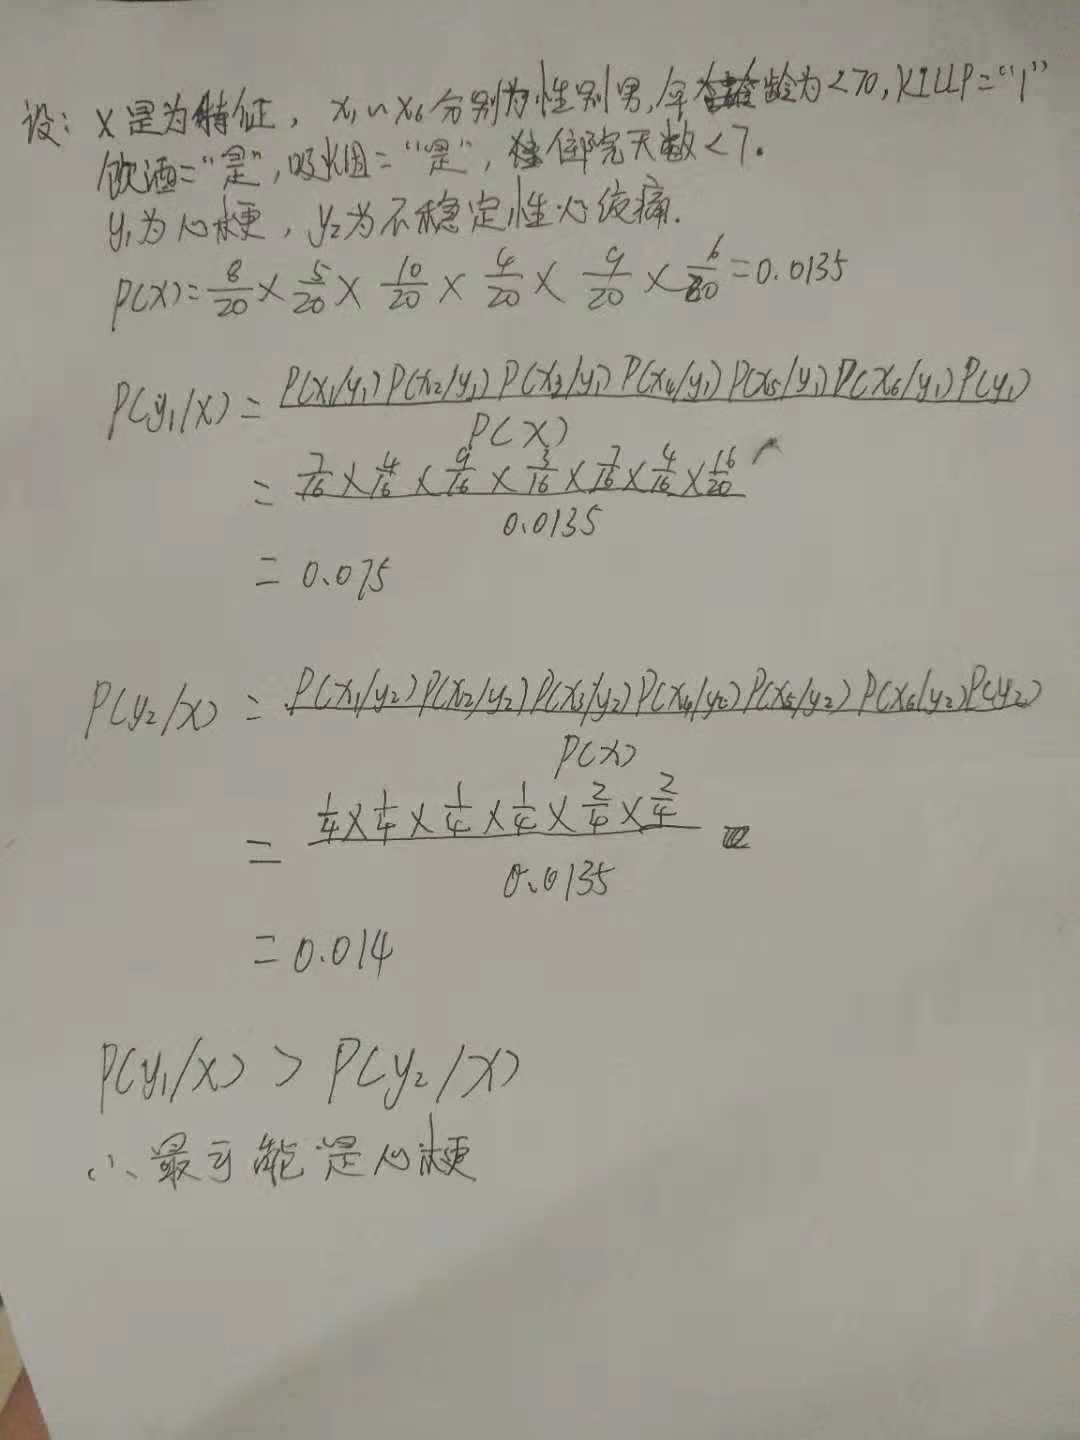 设：X是为特征，x₁~x₆分别为性别男，年龄为<70，KILLP="1"
饮酒="是"，吸烟="是"，住院天数<7.
y₁为心梗，y₂为不稳定性心绞痛.
P(X)= 8/20 × 5/20 × 10/20 × 4/20 × 9/20 × 6/20 = 0.0135
P(y₁/X) = P(x₁/y₁)P(x₂/y₁)P(x₃/y₁)P(x₄/y₁)P(x₅/y₁)P(x₆/y₁)P(y₁) / P(X)
= 7/16 × 4/16 × 9/16 × 3/16 × 7/16 × 4/16 × 16/20 / 0.0135
= 0.075
P(y₂/X) = P(x₁/y₂)P(x₂/y₂)P(x₃/y₂)P(x₄/y₂)P(x₅/y₂)P(x₆/y₂)P(y₂) / P(X)
= 1/4 × 1/4 × 1/4 × 1/4 × 2/4 × 2/4 / 0.0135 =
= 0.014
P(y₁/X) > P(y₂/X)
∴最可能是心梗